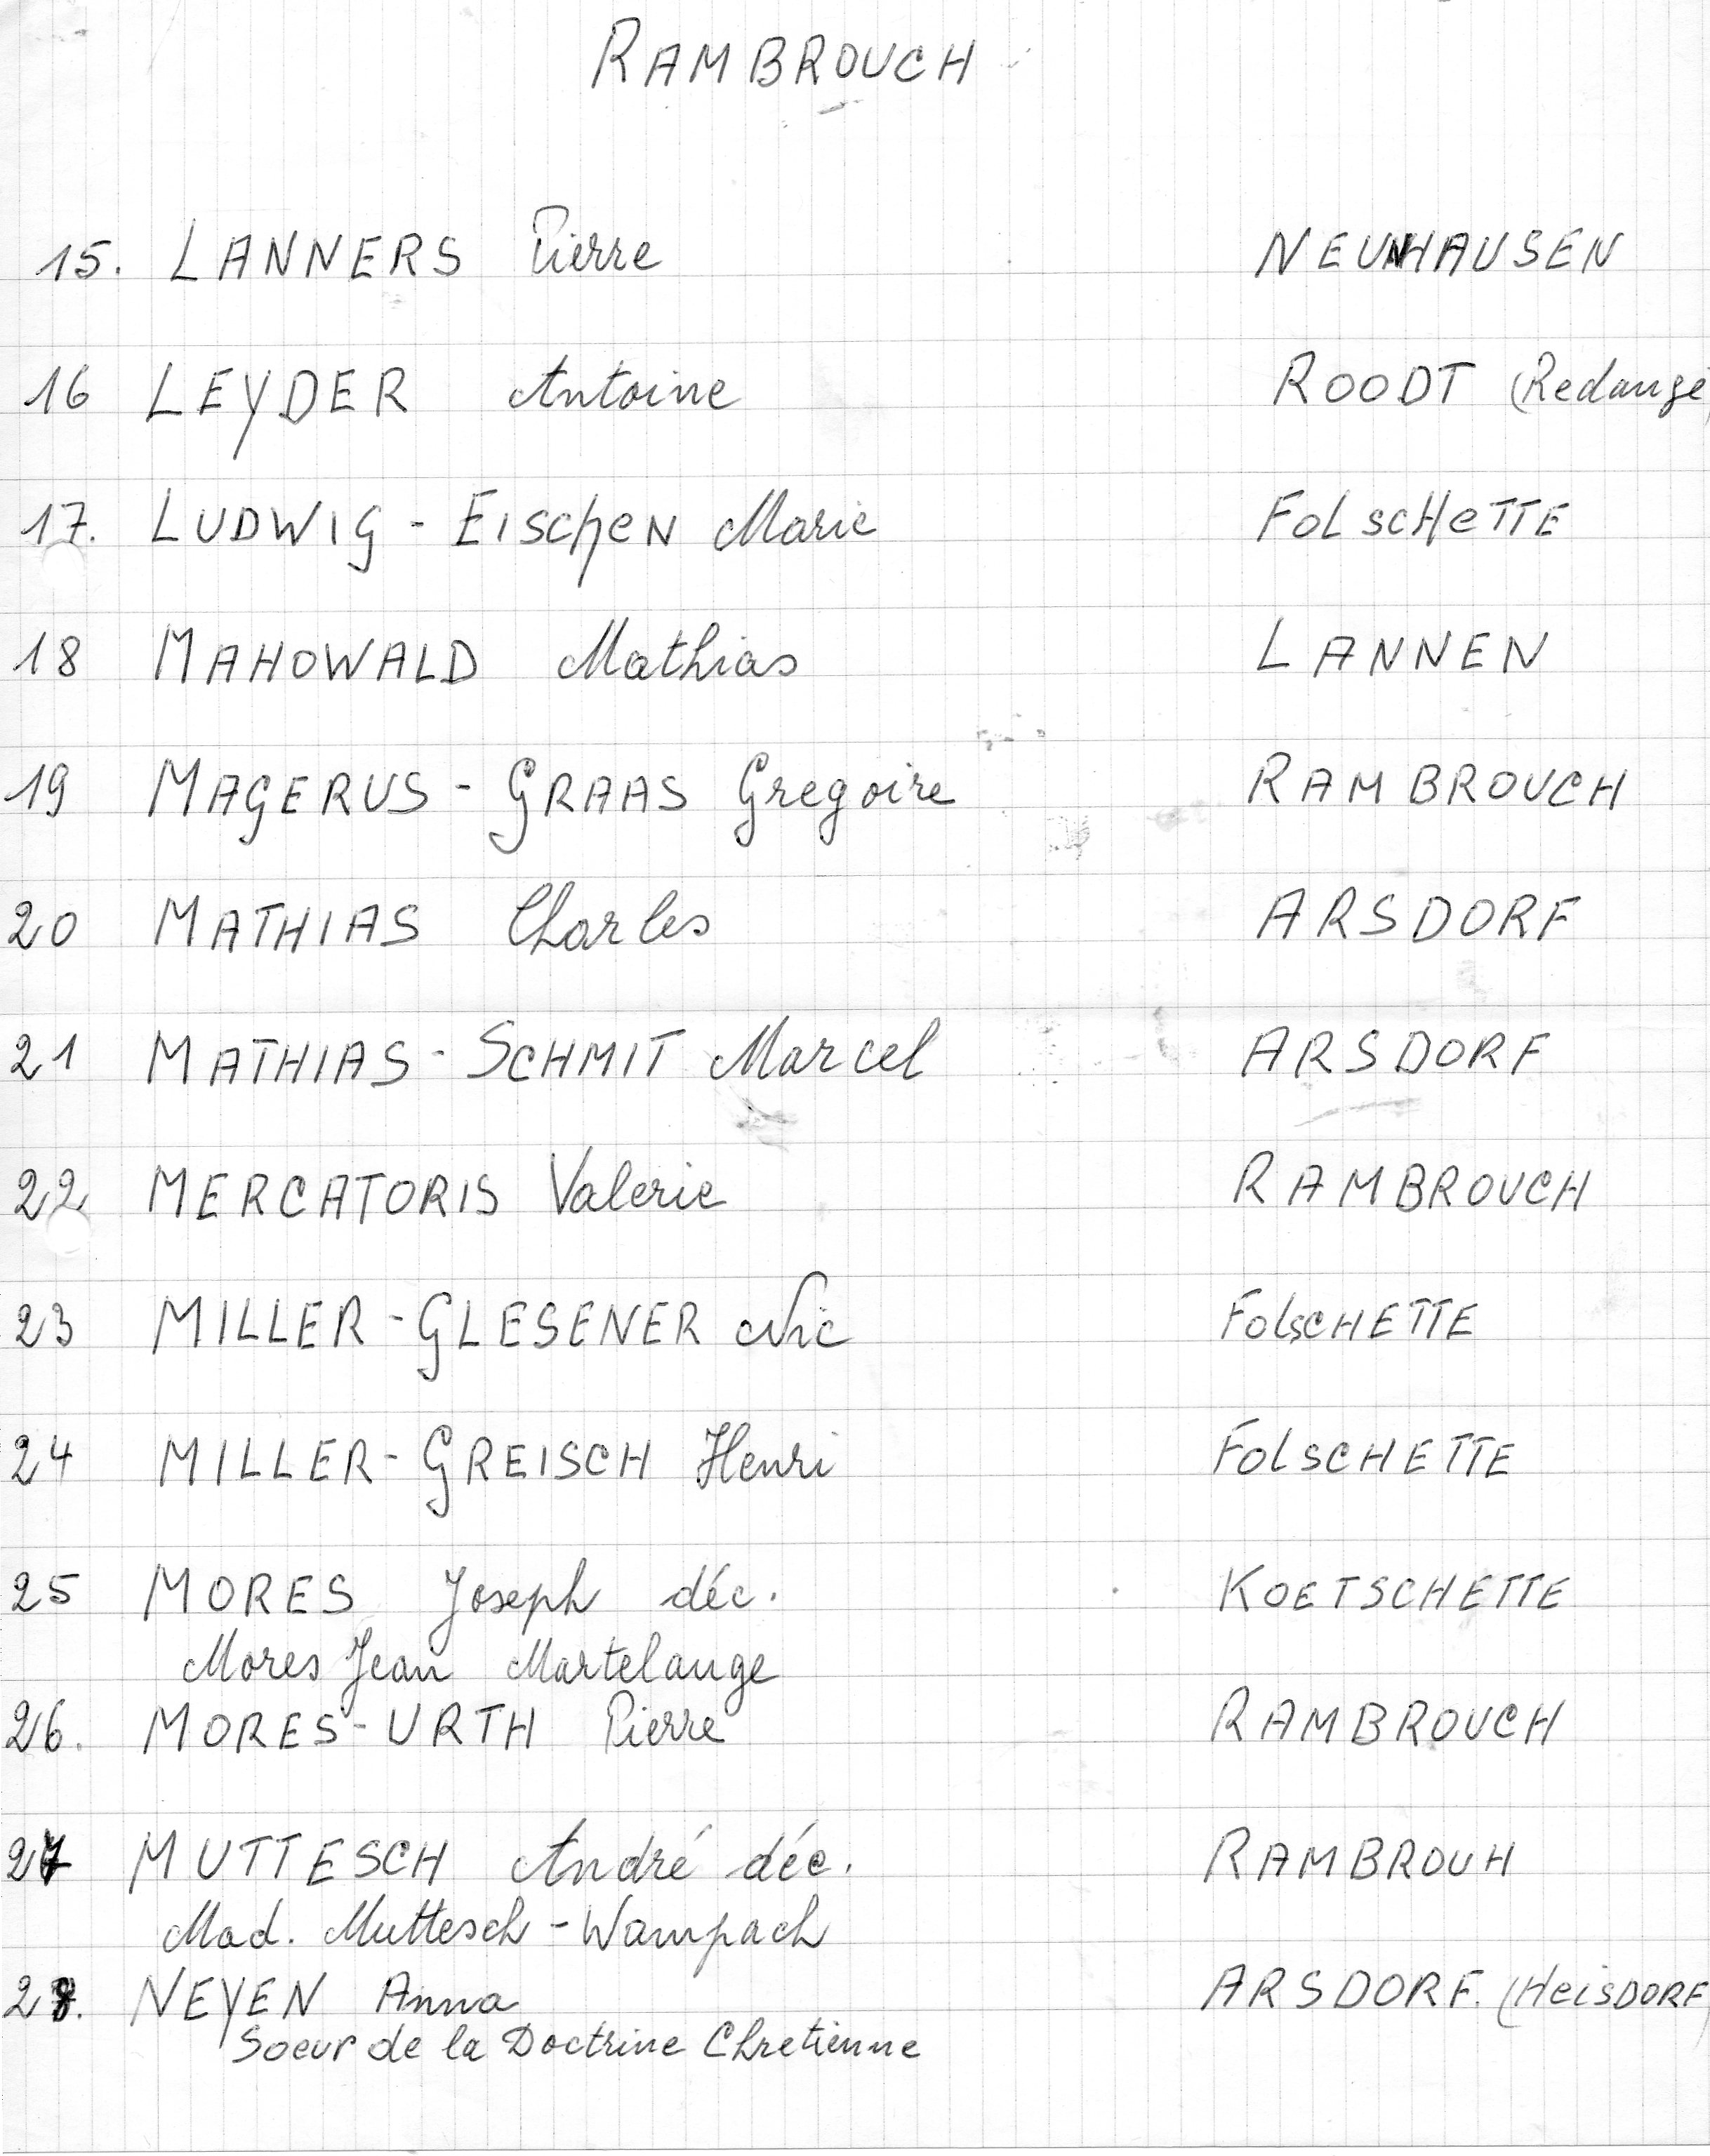 RAMBROUCH
15. LANNERS Pierre NEUNHAUSEN
16 LEYDER Antoine ROODT (Redange)
17. LUDWIG - EISCHEN Marie FOLSCHETTE
18 MAHOWALD Mathias LANNEN
19 MAGERUS - GRAAS Gregoire RAMBROUCH
20 MATHIAS Charles ARSDORF
21 MATHIAS - SCHMIT Marcel ARSDORF
22 MERCATORIS Valerie RAMBROUCH
23 MILLER - GLESENER Nic FOLSCHETTE
24 MILLER - GREISCH Henri FOLSCHETTE
25 MORES Joseph déc. KOETSCHETTE
Mores Jean Martelange
26. MORES - URTH Pierre RAMBROUCH
27 MUTTESCH André déc. RAMBROUH
Mad. Muttesch - Wampach
28. NEYEN Anna ARSDORF. (HeisDORF)
Soeur de la Doctrine Chretienne